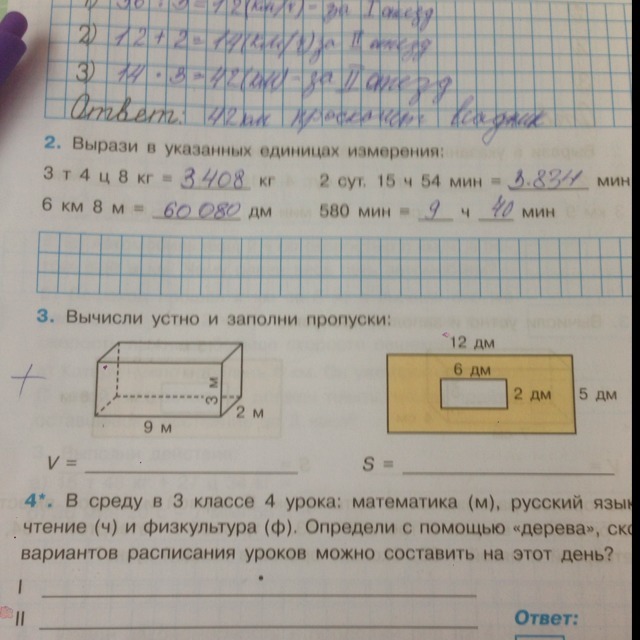 1) 36 : 3 = 12 (км/ч) - за I отезд
2) 12 + 2 = 14 (км/ч) за II отезд
3) 14 · 3 = 42 (км) - за II отезд
Ответ: 42 км всадник
2. Вырази в указанных единицах измерения:
3 т 4 ц 8 кг = 3408 кг 2 сут. 15 ч 54 мин = 3.834 мин
6 км 8 м = 60 080 дм 580 мин = 9 ч 40 мин
3. Вычисли устно и заполни пропуски:
12 дм
6 дм
2 дм 5 дм
3 м
2 м
9 м
V = S =
4*. В среду в 3 классе 4 урока: математика (м), русский язык
чтение (ч) и физкультура (ф). Определи с помощью «дерева», ско
вариантов расписания уроков можно составить на этот день?
I
II
Ответ: